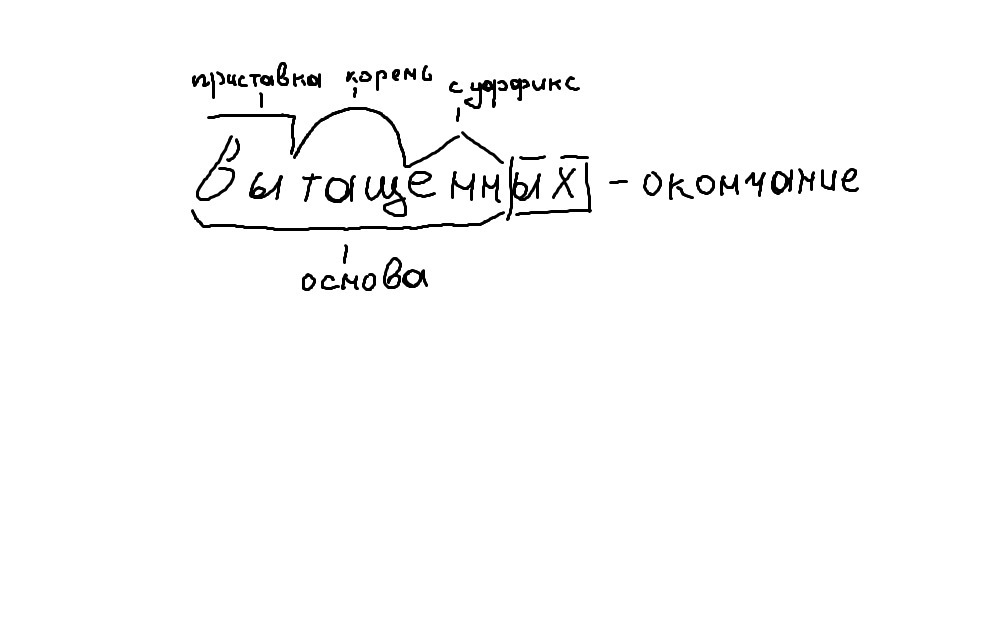 приставка корень суффикс
Вытащенных - окончание
основа